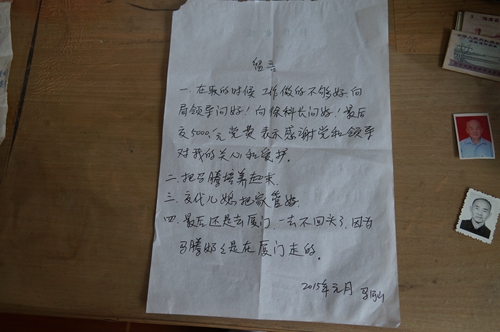 遗言
一.在职的时候工作做的不够好.向
局领导问好!向保科长问好!最后
交5000元党费表示感谢党和领导
对我的关心和爱护.
二.把马腾培养起来.
三.交代儿媳把家管好.
四.最后还是去厦门,一去不回头了,因为
马腾奶奶是在厦门走的.
2015年元月